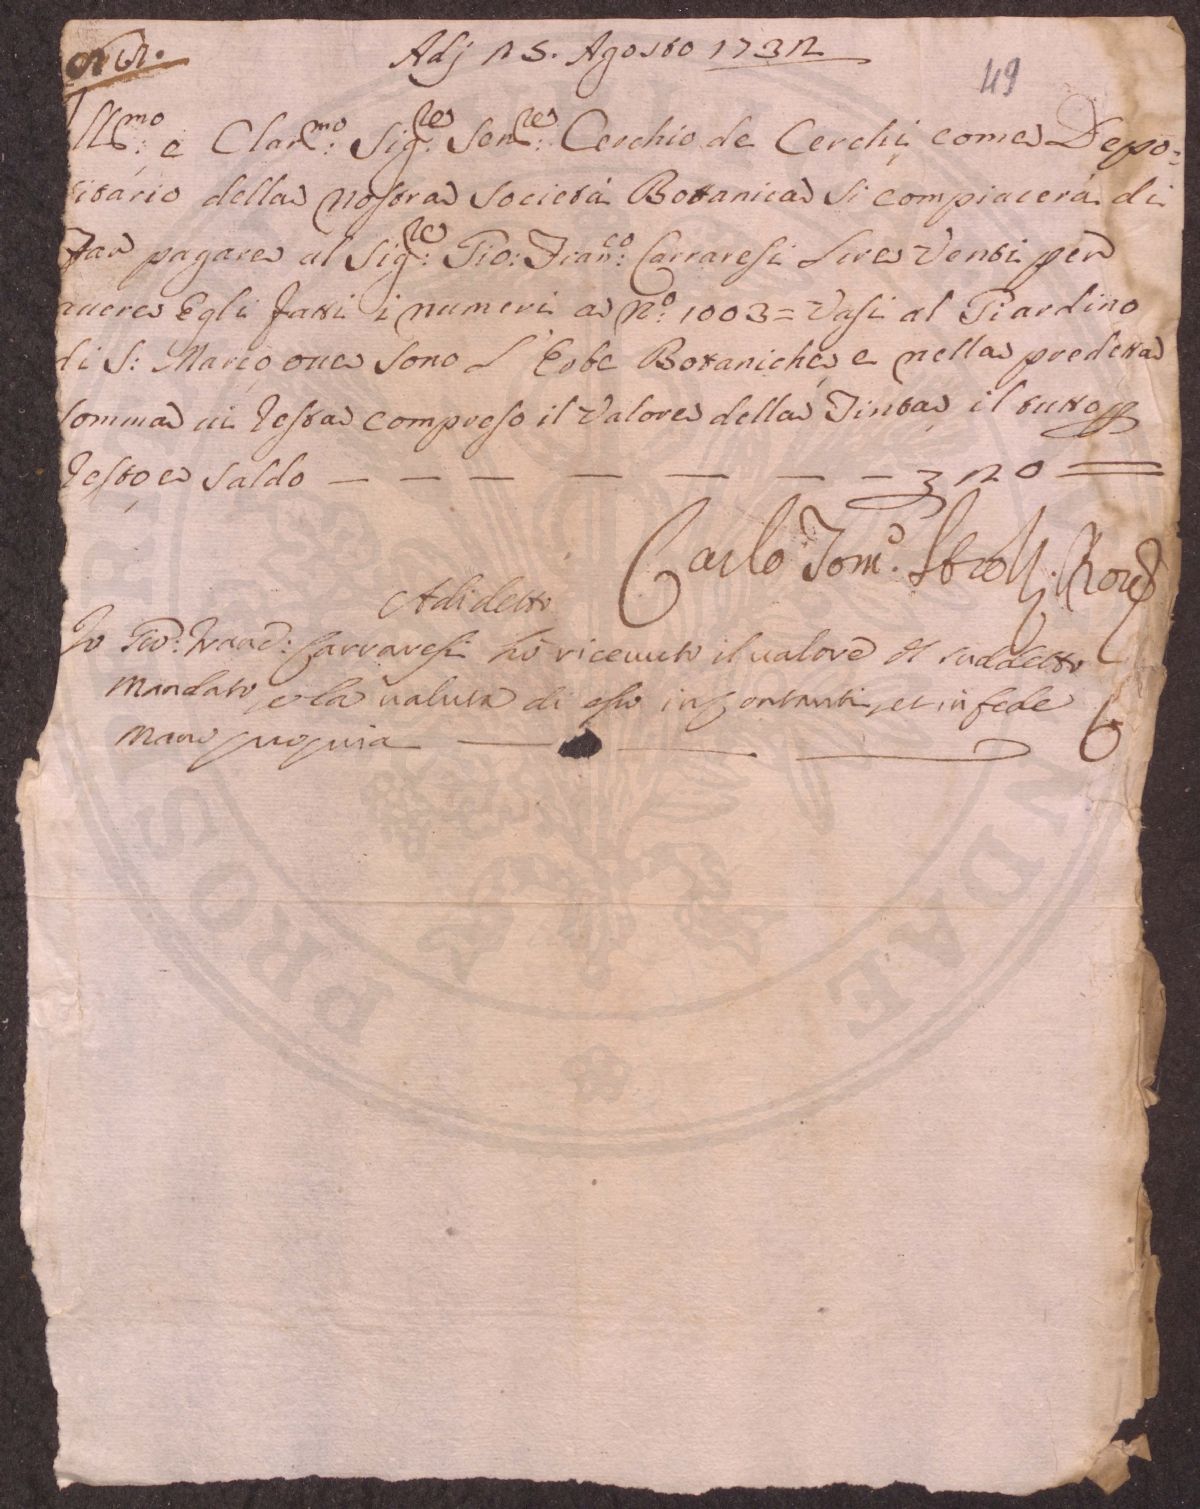 Adj 25. Agosto 1732
49
Ill.mo e Clar.mo Sig.re Sen.re Cerchio de Cerchi come Depo=
sitario della nostra Società Botanica si compiacerà di
far pagare al Sig.re Gio: Fran.co Carraresi Lire Venti per
auere Egli fatti i numeri a n.o 1003= Vasi al Giardino
di S: Marco, oue sono L'Erbe Botaniche, e nella predetta
somma ui resta compreso il Valore della Tinta, il tutto p
resto e saldo — — — — — — — 20 =
Carlo Tom.o Strozzi
Adi detto
Io Gio: Franc: Carraresi hò riceuuto il ualore del suddetto
Mandato, e la ualuta di esso in contanti, et in fede
mano propria
PROSPERITATI